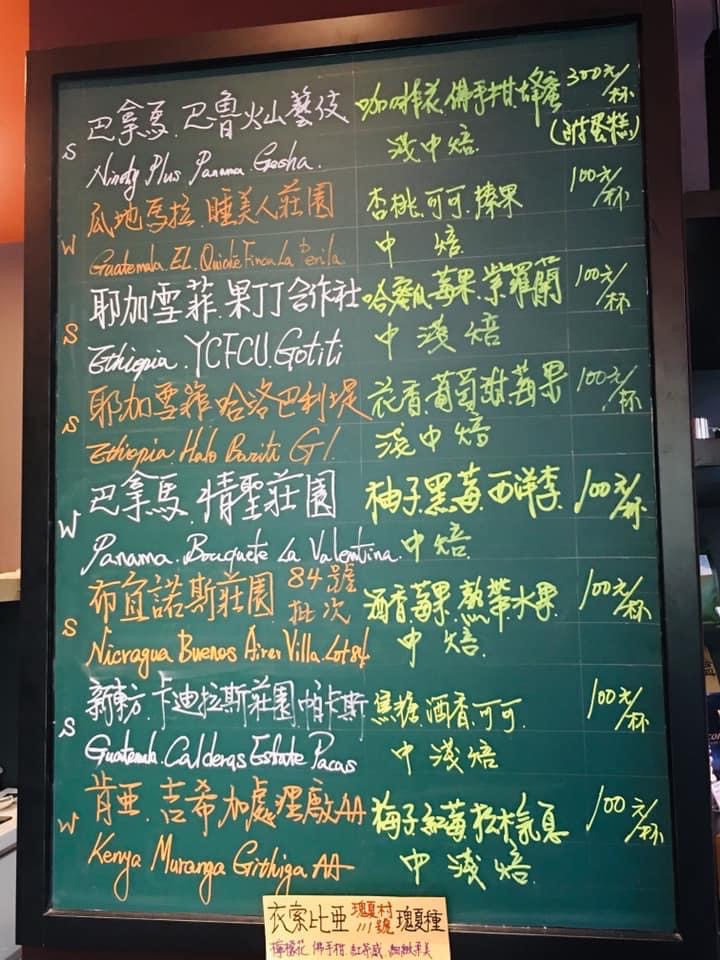 S 巴拿馬.巴魯火山藝伎 咖啡花.佛手柑.蜂蜜 300元/杯
Ninety Plus Panama Gesha. 淺中焙 (附蛋糕)
W 瓜地馬拉.睡美人莊園 杏桃.可可.榛果 100元/杯
Guatemala.EL.Quiche Finca La Perla 中焙
S 耶加雪菲.果丁合作社 哈密瓜.莓果.紫羅蘭 100元/杯
Ethiopia.YCFCU.Gotiti 中淺焙
S 耶加雪菲哈洛巴利堤 花香.葡萄甜.莓果 100元/杯
Ethiopia Halo Bariti G1. 淺中焙
W 巴拿馬.情聖莊園 柚子.黑莓.西洋李 100元/杯
Panama.Bouquete La Valentina. 中焙.
S 布宜諾斯莊園 84號批次 酒香.莓果.熱帶水果 100元/杯
Nicragua Buenos Aires Villa.Lot84 中焙.
S 新東方.卡迪拉斯莊園.帕卡斯 焦糖.酒香.可可. 100元/杯
Guatemala.Calderas Estate Pacas 中淺焙
W 肯亞.吉希加處理廠AA 梅子.紅莓.松木氣息 100元/杯
Kenya Muranga Githiga AA 中淺焙.
衣索比亞 瑰夏村 111號 瑰夏種
檸檬花.佛手柑.紅茶感